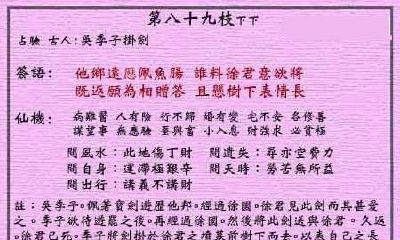 第八十九枝下下
占驗 古人:吳季子掛劍
答語: 他鄉遠歷佩魚腸 誰料徐君意欲將
既返願為相贈答 且懸樹下表情長
仙機: 病難醫 人有險 行不歸 婚有變 宅不安 各修善
謀望事 無應驗 至興富 小入息 財強求 必貧極
問風水:此地傷丁財 問遺失:尋亦空費力
問自身:運滯極艱辛 問天時:勞苦無所益
問出行:講義不講財
註:吳季子。佩著寶劍遊歷他邦。經過徐國。徐君見此劍而其甚愛
之。季子欲待遊罷之後。再經過徐國。然後將此劍送與徐君。久返
徐君已死。季子將劍掛於徐君之墳墓前樹下而去。以表自己之長